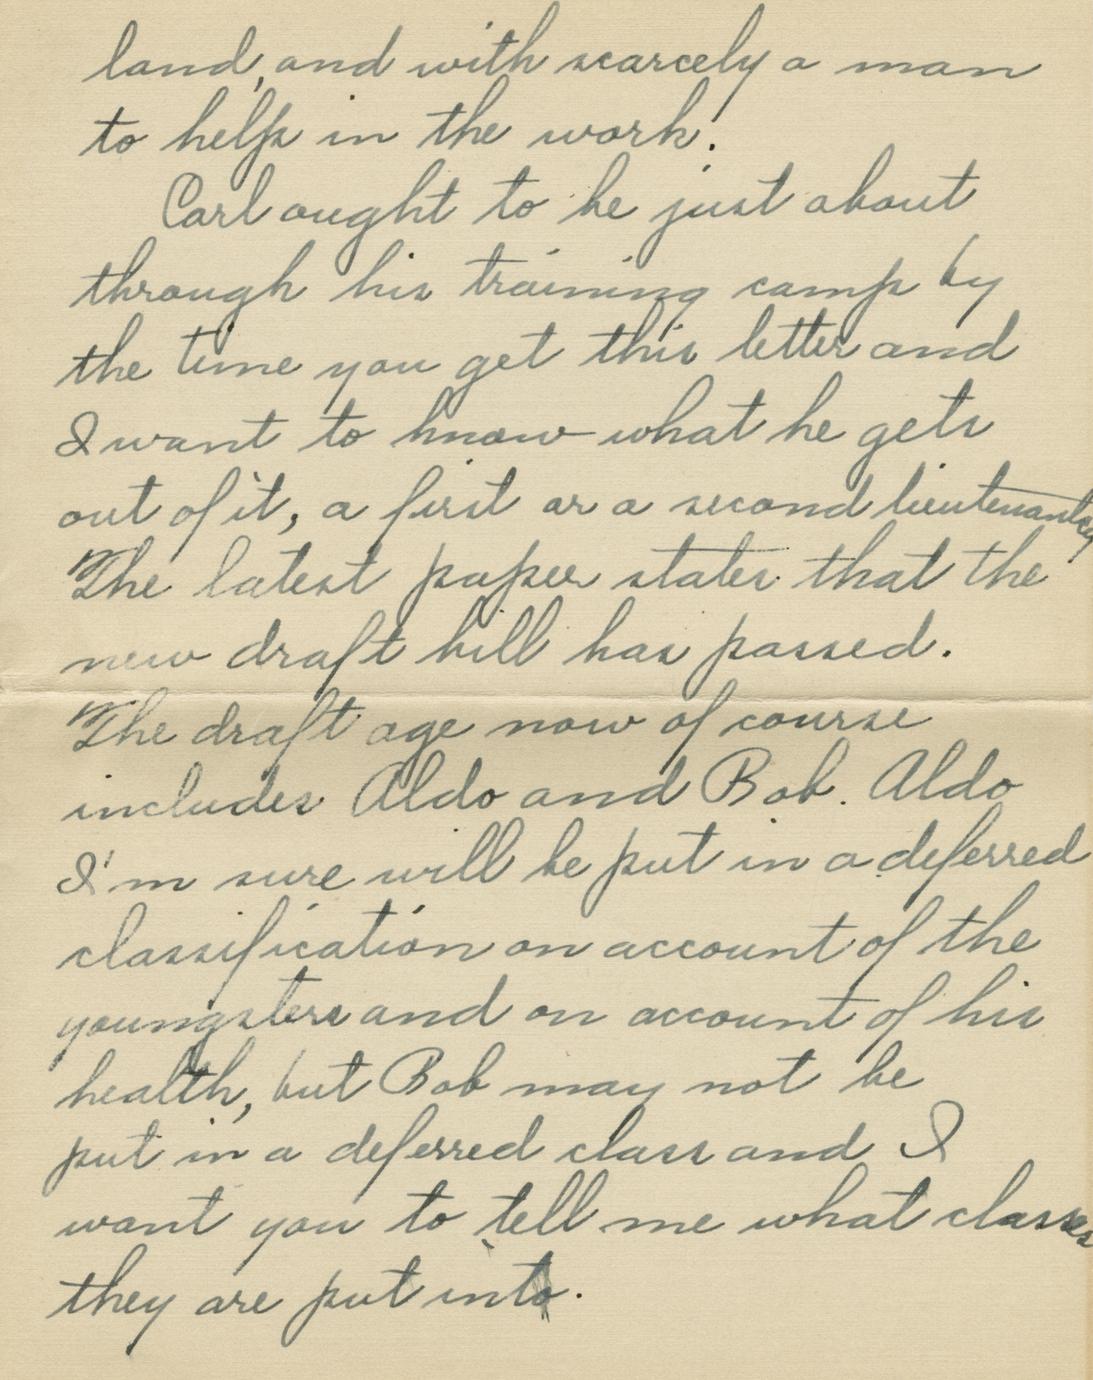 land, and with scarcely a man
to help in the work.
Carl ought to be just about
through his training camp by
the time you get this letter and
I want to know what he gets
out of it, a first or a second lieutenantcy
The latest paper states that the
new draft bill has passed.
The draft age now of course
includes Aldo and Bob. Aldo
I'm sure will be put in a deferred
classification on account of the
youngsters and on account of his
health, but Bob may not be
put in a deferred class and I
want you to tell me what classes
they are put into.